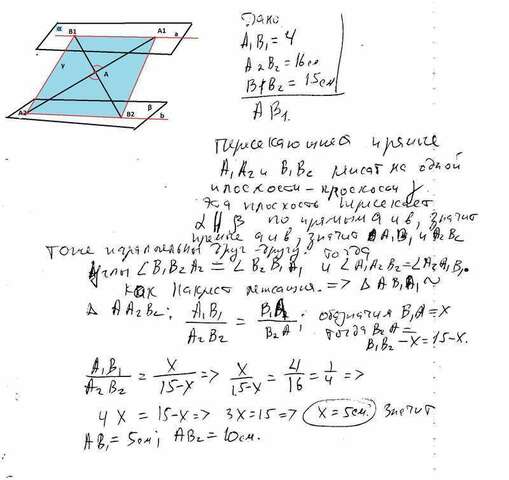 α B1 A1 a
γ
A
A2 B2 β b
Дано
A₁B₁ = 4
A₂B₂ = 16см
B₁B₂ = 15см
AB₁.
Пересекающиеся прямые
A₁A₂ и B₁B₂ лежат на одной
плоскости – плоскости γ.
Эта плоскость пересекает
α || β по прямым а и в, значит
прямые а и в, значит A₁B₁ и A₂B₂
тоже параллельны друг другу. Тогда
Углы ∠B₁B₂A₂ = ∠B₂B₁A₁ и ∠A₁A₂B₂ = ∠A₂A₁B₁.
как накрест лежащие. => Δ AB₁A₁ ~
Δ AA₂B₂; A₁B₁/A₂B₂ = B₁A/B₂A; обозначим B₁A = X
тогда B₂A =
B₁B₂ – X = 15 - X.
A₁B₁/A₂B₂ = X/15-X => X/15-X = 4/16 = 1/4 =>
4X = 15-X => 3X = 15 => X = 5см. Значит
AB₁ = 5см; AB₂ = 10см.